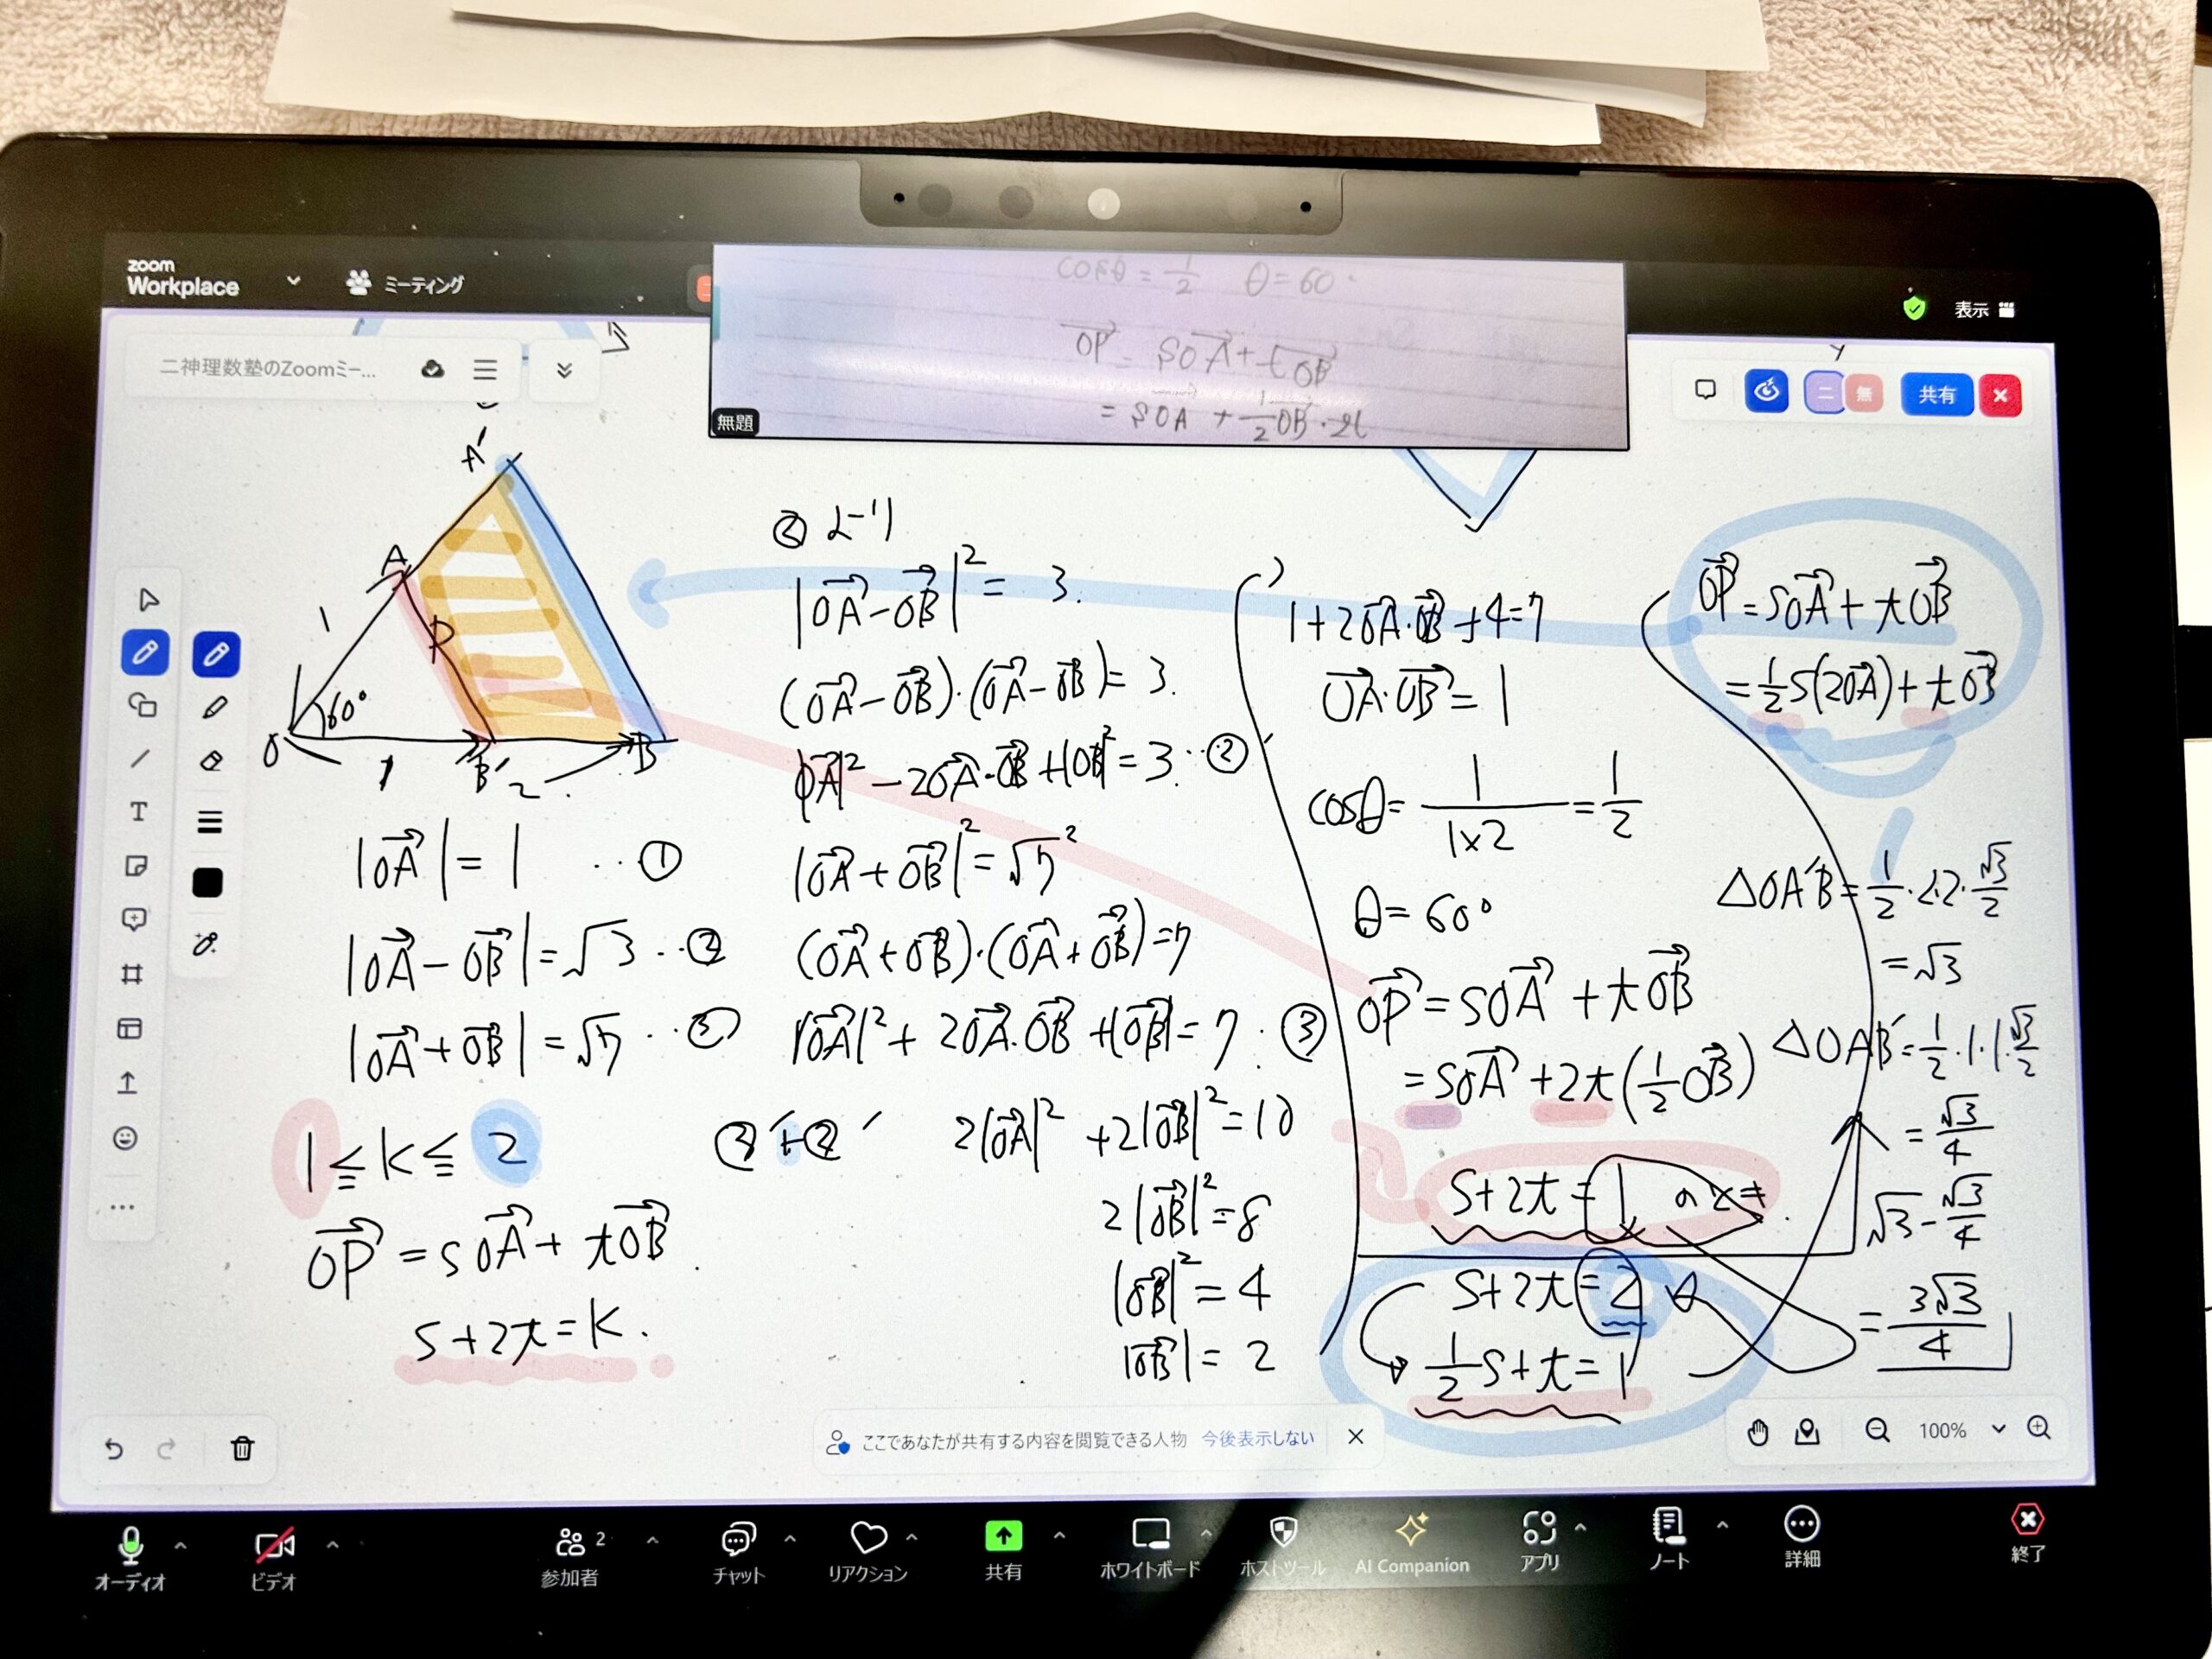 zoom
Workplace
ミーティング
表示
cosθ = 1/2 θ = 60°
OP→ = sOA→ + tOB→
= sOA→ + 1/2 OB→・2t
無題
二神理数塾のZoomミー...
二
無
共有
A'
A
1
P
60°
O
1
B'
2
B
|OA→| = 1 ‥①
|OA→ - OB→| = √3 ‥②
|OA→ + OB→| = √7 ‥③
1 ≦ k ≦ 2
OP→ = sOA→ + tOB→
s+2t = k.
② より
|OA→ - OB→|² = 3.
(OA→ - OB→)・(OA→ - OB→) = 3.
|OA→|² - 2OA→・OB→ + |OB→|² = 3 ‥②'
|OA→ + OB→|² = √7²
(OA→ + OB→)・(OA→ + OB→) = 7
|OA→|² + 2OA→・OB→ + |OB→| = 7 ‥③
③' + ②' 2|OA→|² + 2|OB→|² = 10
2|OB→|² = 8
|OB→|² = 4
|OB→| = 2
1 + 2OA→・OB→ + 4 = 7
OA→・OB→ = 1
cosθ = 1/(1×2) = 1/2
θ = 60°
OP→ = sOA→ + tOB→
= sOA→ + 2t(1/2 OB→)
s+2t = 1 のとき.
s+2t = 2
1/2 s + t = 1
OP→ = sOA→ + tOB→
= 1/2 s(2OA→) + tOB→
△OA'B = 1/2・2・2・√3/2
= √3
△OAB' = 1/2・1・1・√3/2
= √3/4
√3 - √3/4
= 3√3/4
ここであなたが共有する内容を閲覧できる人物 今後表示しない
100%
オーディオ
ビデオ
参加者 2
チャット
リアクション
共有
ホワイトボード
ホストツール
AI Companion
アプリ
ノート
詳細
終了